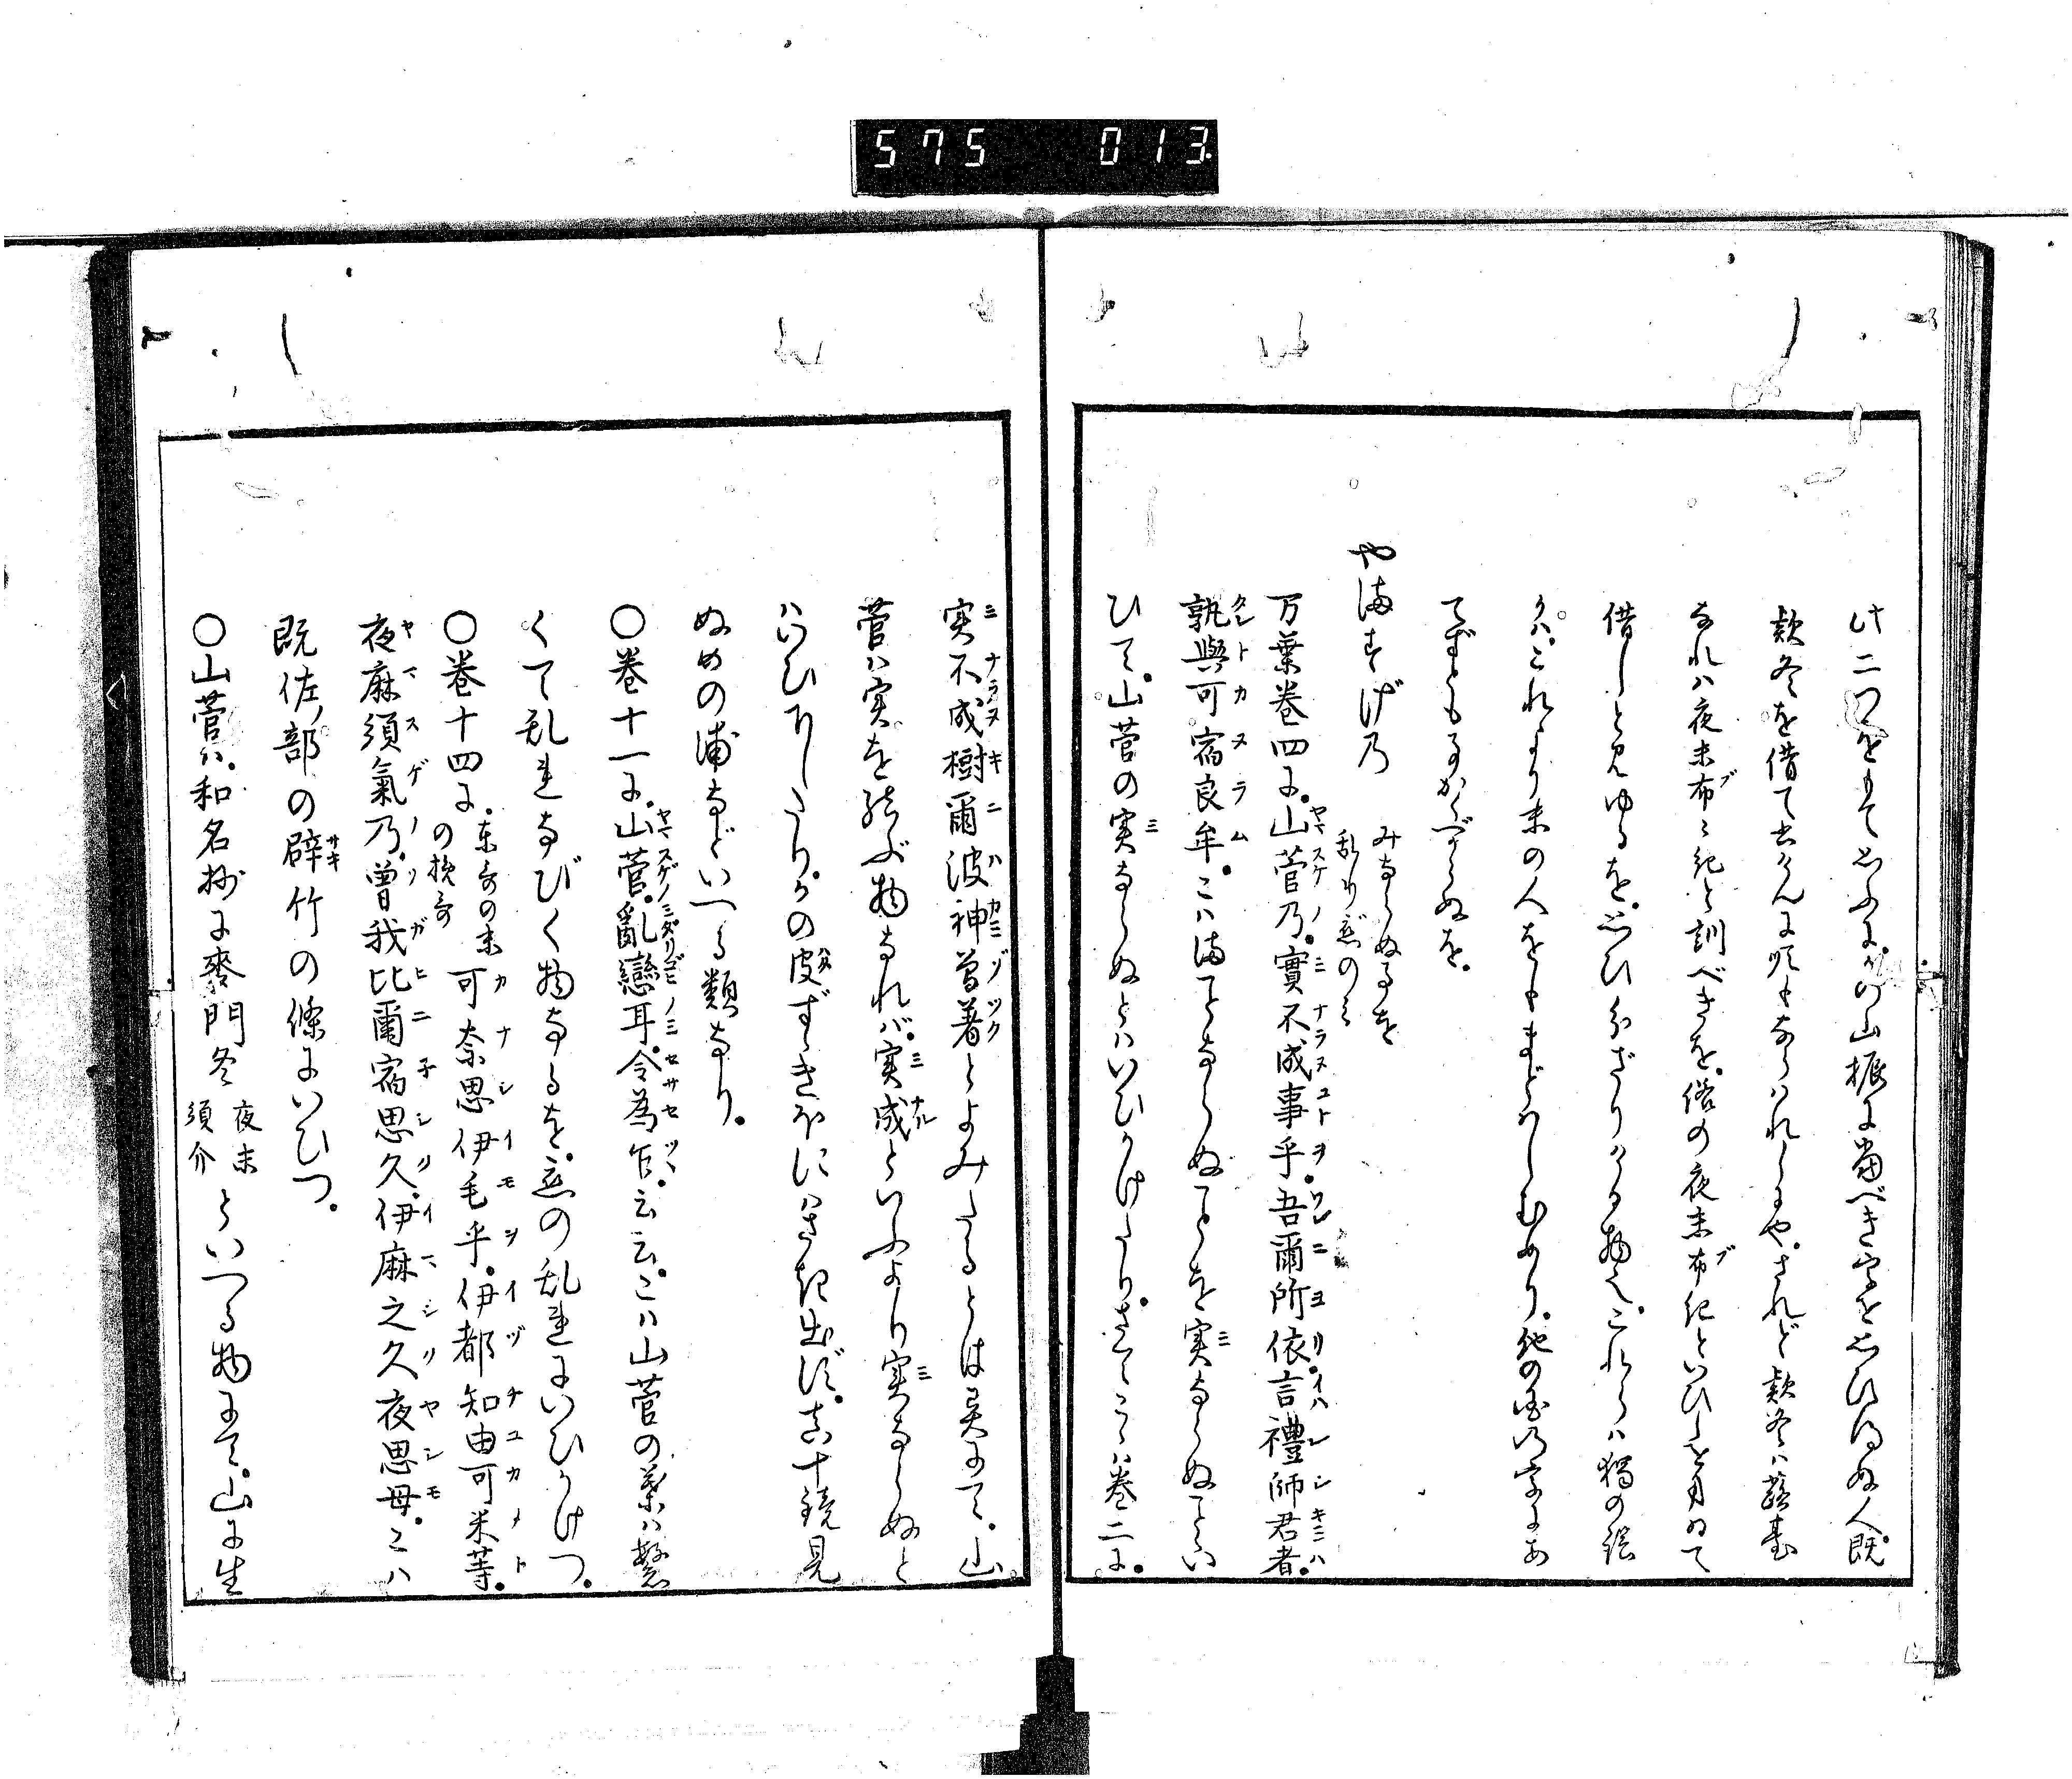 575 013
此二つをもて思ふに、かの山振に當べき字を思ひ得ぬ人、既
款冬を借て書けんに順もならはれしにや、されど款冬は蕗臺
なれハ夜末布ゝ紀と訓べきを、俗の夜末布紀といひしを用ゐて
借しと見ゆるを、思ひ分ざりける物也、これらハ獨の
ハ、これより末の人をもまどはしむめり、他の
てずともるかくべからぬを、
やますげ乃 みならぬるを 乱り恋のミ
万葉巻四に、山菅乃、實不成事乎、吾爾所依、言禮師君者、
孰與可宿良牟、こハまことならぬことを実ならぬことい
ひて、山菅の実ならぬとハいひかけたり、さてこゝハ巻二に、
実不成樹爾波神曽著とよみたるとは異にて、山
菅ハ実を結ぶ物なれバ、実成といふより実ならぬと
ハいひ下したり、かの皮ずゝきほにハさき出ず、真十鏡見
ぬめの浦などいへる類なり、
〇巻十一に、山菅、亂戀耳、令為乍、云云、こハ山菅の葉ハ繁
くて乱れなびく物なるを、恋の乱れにいひかけつ、
〇巻十四に、東哥の末の挽哥 可奈思伊毛乎、伊都知由可米等、
夜麻須氣乃、曽我比爾宿思久、伊麻之久夜思母、こハ
既佐ノ部の辟竹の條にいひつ、
〇山菅ハ、和名抄に麥門冬 夜末須介 といへる物にて、山に生